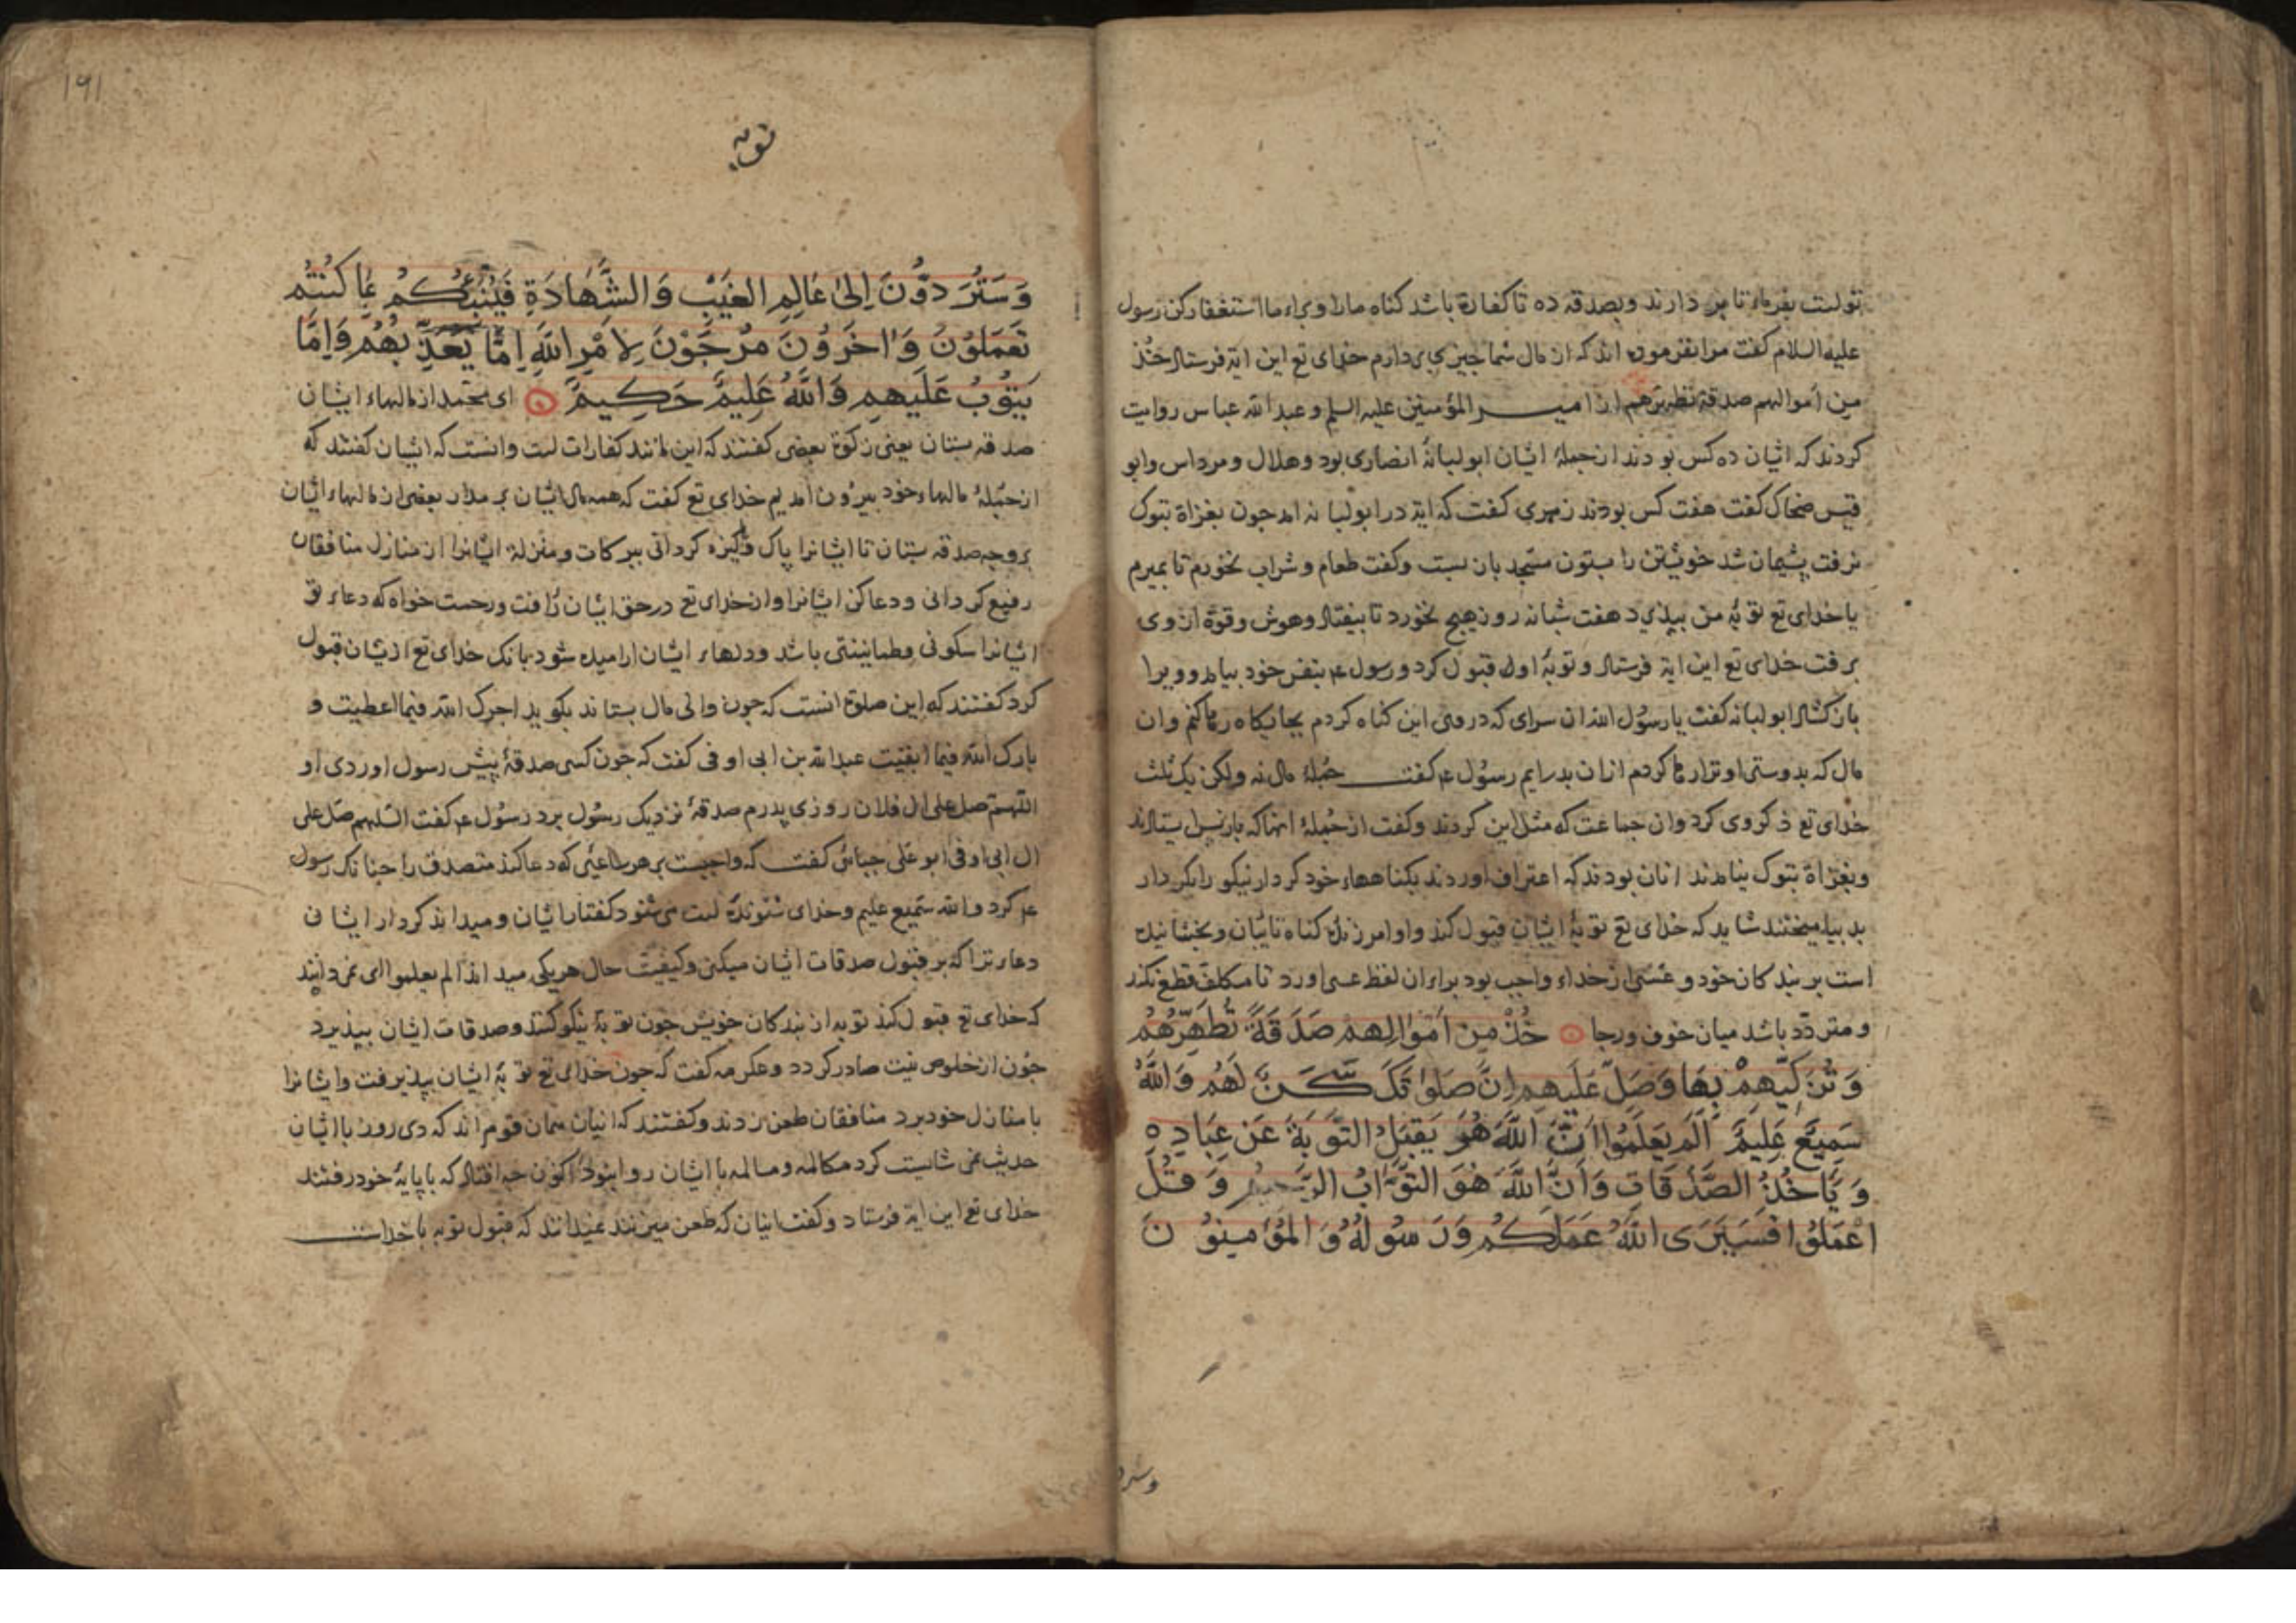 تولست بفرماء تا بر دارند وبصدقه ده تا کفارة باشد کناه ما را وبراء ما استغفار کن رسول
علیه السلام کفت مرا نفرموده اند که از مال شما چیزی بردارم خدای تع این ایة فرستاد خُذ
من اموالهم صدقة تطهرهم از امیر المؤمنین علیه السلم و عبد الله عباس روایت
کردند که ایشان ده کس بودند از جملۀ ایشان ابو لبانه انصاری بود وهلال ومرداس وابو
قیس ضحاک کفت هفت کس بودند زهری کفت که ایة در ابو لبانه امد جون بغزاة تبوک
نرفت پشیمان شد خویشتن را بستون مسجد بان بست وکفت طعام و شراب نخورم تا بمیرم
یا خدای تع توبۀ من بپذیرد هفت شبانه روز هیچ نخورد تا بیفتاد وهوش وقوة از وی
برفت خدای تع این ایة فرستاد و توبۀ اول قبول کرد ورسول ع بنفس خود بیامد وویرا
باز کشاد ابو لبانه کفت یا رسول الله ان سرای که در وی این کناه کردم بجایکاه رها کنم وان
مال که بدوستی او ترا رها کردم ازان بدر ایم رسول ع کفت جملۀ مال نه ولکن یک ثلث
خدای تع ذکر وی کرد وان جماعت که مثل این کردند وکفت از جملۀ انها که بازپس ایستادند
وبغزاة تبوک نیامدند انان بودند که اعتراف اوردند بکناهاء خود کردار نیکو را بکردار
بد بیامیختند شاید که خدای تع توبۀ ایشان قبول کند واو امرزندۀ کناه تایبان وبخشاینده
است بر بندکان خود و عَسَی از خداء واجب بود براء ان لفظ عسی اورد تا مکلف قطع نکند
ومتردّد باشد میان خوف ورجا خُذْ مِنْ اَمْوَالِهِمْ صَدَقَةً تُطَهِّرُهُمْ
وَتُزَكِّيهِمْ بِهَا وَصَلِّ عَلَيهِم اِنَّ صَلَوٰتَكَ سَكَنٌ لَهُم وَاللّٰهُ
سَمِيعٌ عَلِيمٌ اَلَم يَعلَمُوا اَنَّ اللّٰهَ هُوَ يَقبَلُ التَّوبَةَ عَن عِبَادِهِ
وَيَأخُذُ الصَّدَقَاتِ وَاَنَّ اللّٰهَ هُوَ التَّوَّابُ الرَّحِيمُ وَقُلِ
اعْمَلُوا فَسَيَرَى اللّٰهُ عَمَلَكُم وَرَسُولُهُ وَالمُؤمِنُونَ
وسرد
١٩١
توبه
وَسَتُرَدُّونَ اِلىٰ عَالِمِ الغَيْبِ وَالشَّهَادَةِ فَيُنَبِّئُكُمْ بِمَا كُنتُم
تَعمَلُونَ وَاٰخَرُونَ مُرْجَوْنَ لِاَمْرِ اللّٰهِ اِمَّا يُعَذِّبُهُم وَاِمَّا
يَتُوبُ عَلَيهِم وَاللّٰهُ عَلِيمٌ حَكِيمٌ ای محمد از مالهاء ایشان
صدقه بستان یعنی زکوة بعضی کفتند که این مانند کفارات است وانست که ایشان کفتند که
از جملۀ مالهاء خود بیرون امدیم خدای تع کفت که همه مال ایشان بمدار بعضی از مالهاء ایشان
بروجه صدقه بستان تا ایشانرا پاک وپاکیزه کردانی ببرکات ومنزلة ایشانرا از منازل منافقان
رفیع کردانی ودعا کن ایشانرا واز خدای تع در حق ایشان رأفت ورحمت خواه که دعاء تو
ایشانرا سکونی وطمانینتی باشد ودلهاء ایشان ارامیده شود بانک خدای تع ازیشان قبول
کرد کفتند که این صلوة انست که جون والی مال بستاند بکوید اجرک الله فیما اعطیت و
بارک الله فیما ابقیت عبد الله بن ابی اوفی کفت که جون کسی صدقۀ پیش رسول اوردی او
اللهم صل علی ال فلان روزی پدرم صدقۀ نزدیک رسول برد رسول ع کفت اللهم صل علی
ال ابی اوفی ابو علی جبائی کفت که واجبست بر هر ساعیی که دعا کند متصدق را جنانک رسول
ع کرد والله سمیع علیم وخدای شنونده است می شنود کفتار ایشان ومیداند کردار ایشان
دعاء ترا که بر قبول صدقات ایشان میکنی وکیفیت حال هر یکی میداند الم یعلموا ای نمی دانند
که خدای تع قبول کند توبه از بندکان خویش جون توبۀ نیکو کنند وصدقات ایشان بپذیرد
جون از خلوص نیت صادر کردد وعکرمه کفت که جون خدای تع توبۀ ایشان بپذیرفت وایشانرا
با منازل خود برد منافقان طعن زدند وکفتند که اینان همان قوم اند که دی روز با ایشان
حدیث نمی شایست کرد مکالمه ومسالمه با ایشان روا نبود اکنون جه افتاد که با پایۀ خود رفتند
خدای تع این ایة فرستاد وکفت اینان که طعن میزنند نمیدانند که قبول توبه با خداست